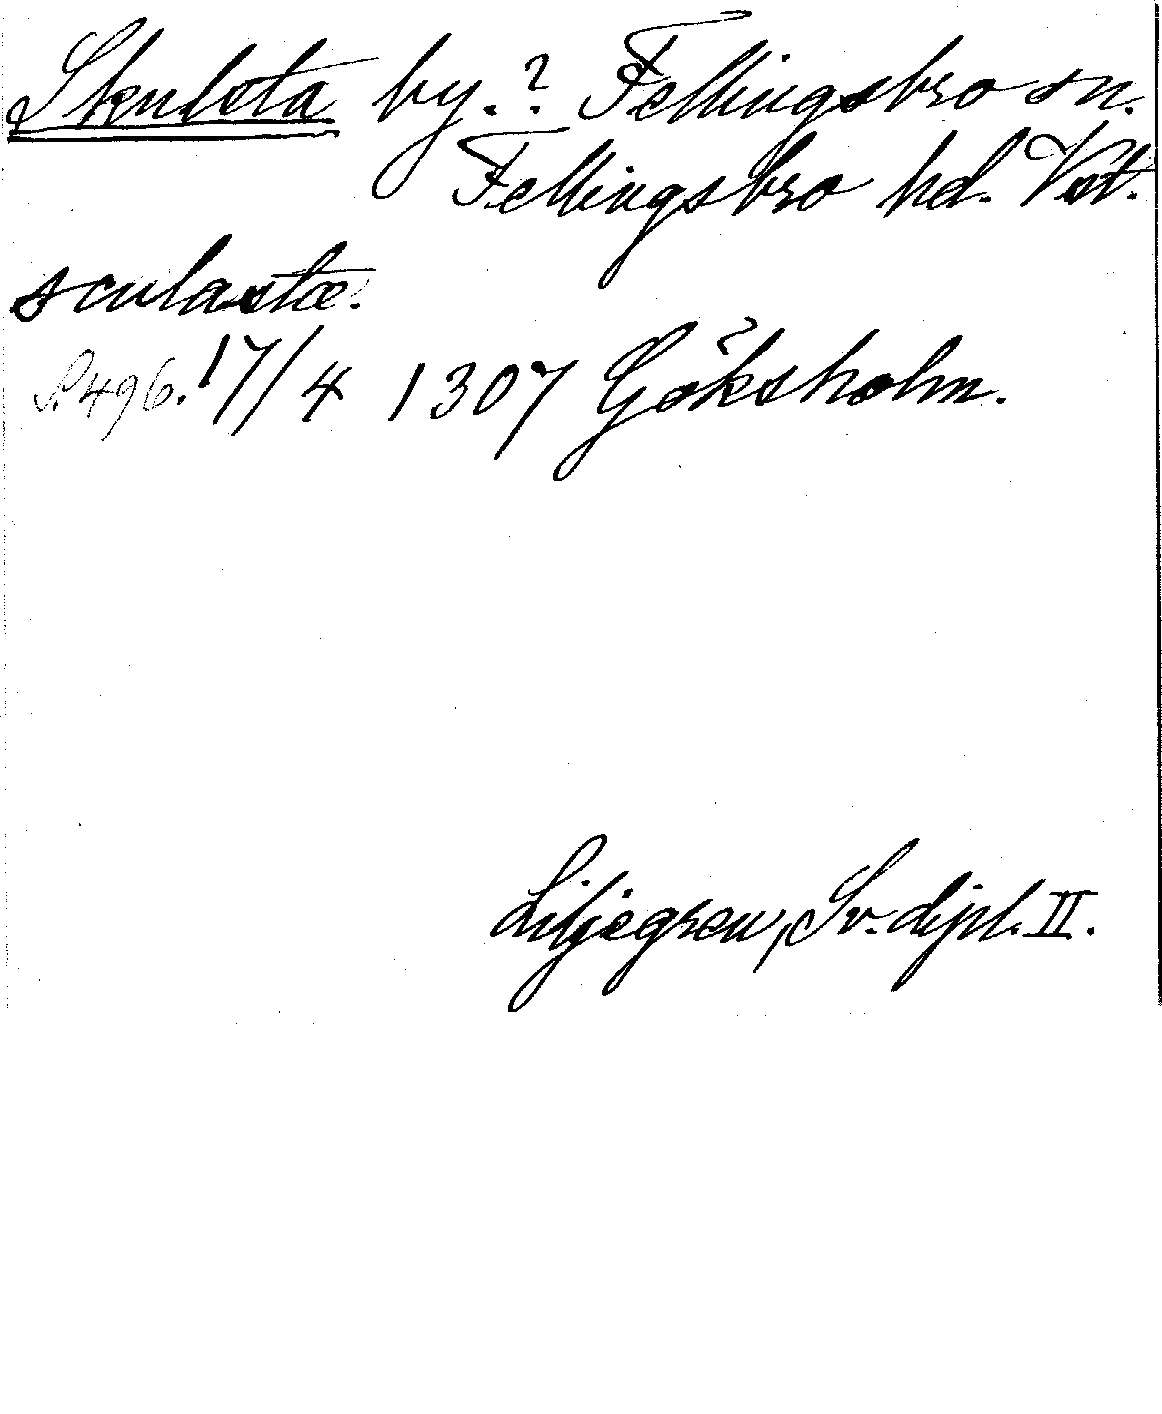 Skulsta by.? Fellingsbro sn.
Fellingsbro hd. Vst.
sculastæ.
S. 496. 17/4 1307 Göksholm.
Liljegren, Sv. dipl. II.